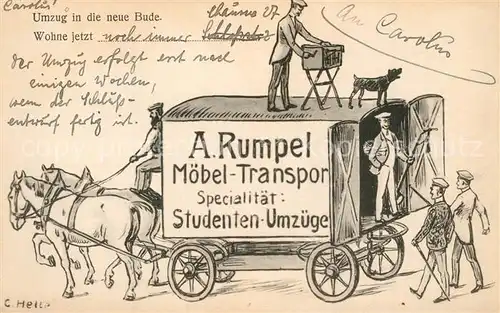 Carolus!
Umzug in die neue Bude.
Wohne jetzt noch immer
27
Der Umzug erfolgt erst nach
einigen Wochen,
wenn der Schluß-
entwurf fertig ist.
An Carolus
A. Rumpel
Möbel-Transpor
Spezialität:
Studenten-Umzüge